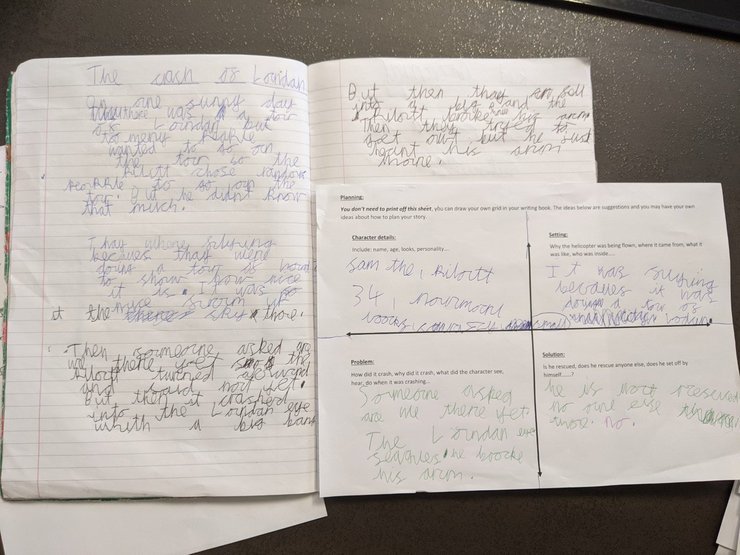 The crash of Loundan
On one sunny day
there was a tour
of Loundan but
to meny peaple
wanted to go on
the tour so the
Pilott chose random
peaPle to go on the
tour. But he didn't know
that much.
They where flying
because they were
doing a tour of
to show how nice
it is. It was so
nice up
the sky
Then someone asked are
we there yet so the
Pilott turned around
and said not yet.
But then it crashed
into the Loundan eye
whith a big bang
But then they fell
into a big and the
Pilott broke his arm
Then they tryed to
get out but he just
heart his arm
more.
Planning:
You don't need to print off this sheet, you can draw your own grid in your writing book. The ideas below are suggestions and you may have your own
ideas about how to plan your story.
Character details:
Include: name, age, looks, personality....
Sam the, Pilott
34,
Setting:
Why the helicopter was being flown, where it came from, what it
was like, who was inside....
It was flying
because it was
doing a tour of
Problem:
How did it crash, why did it crash, what did the character see,
hear, do when it was crashing...
Someone asked
are we there yet.
The Loundan eye
he broocke
his arm.
Solution:
Is he rescued, does he rescue anyone else, does he set off by
himself.....?
he is not rescued
no one else
no.